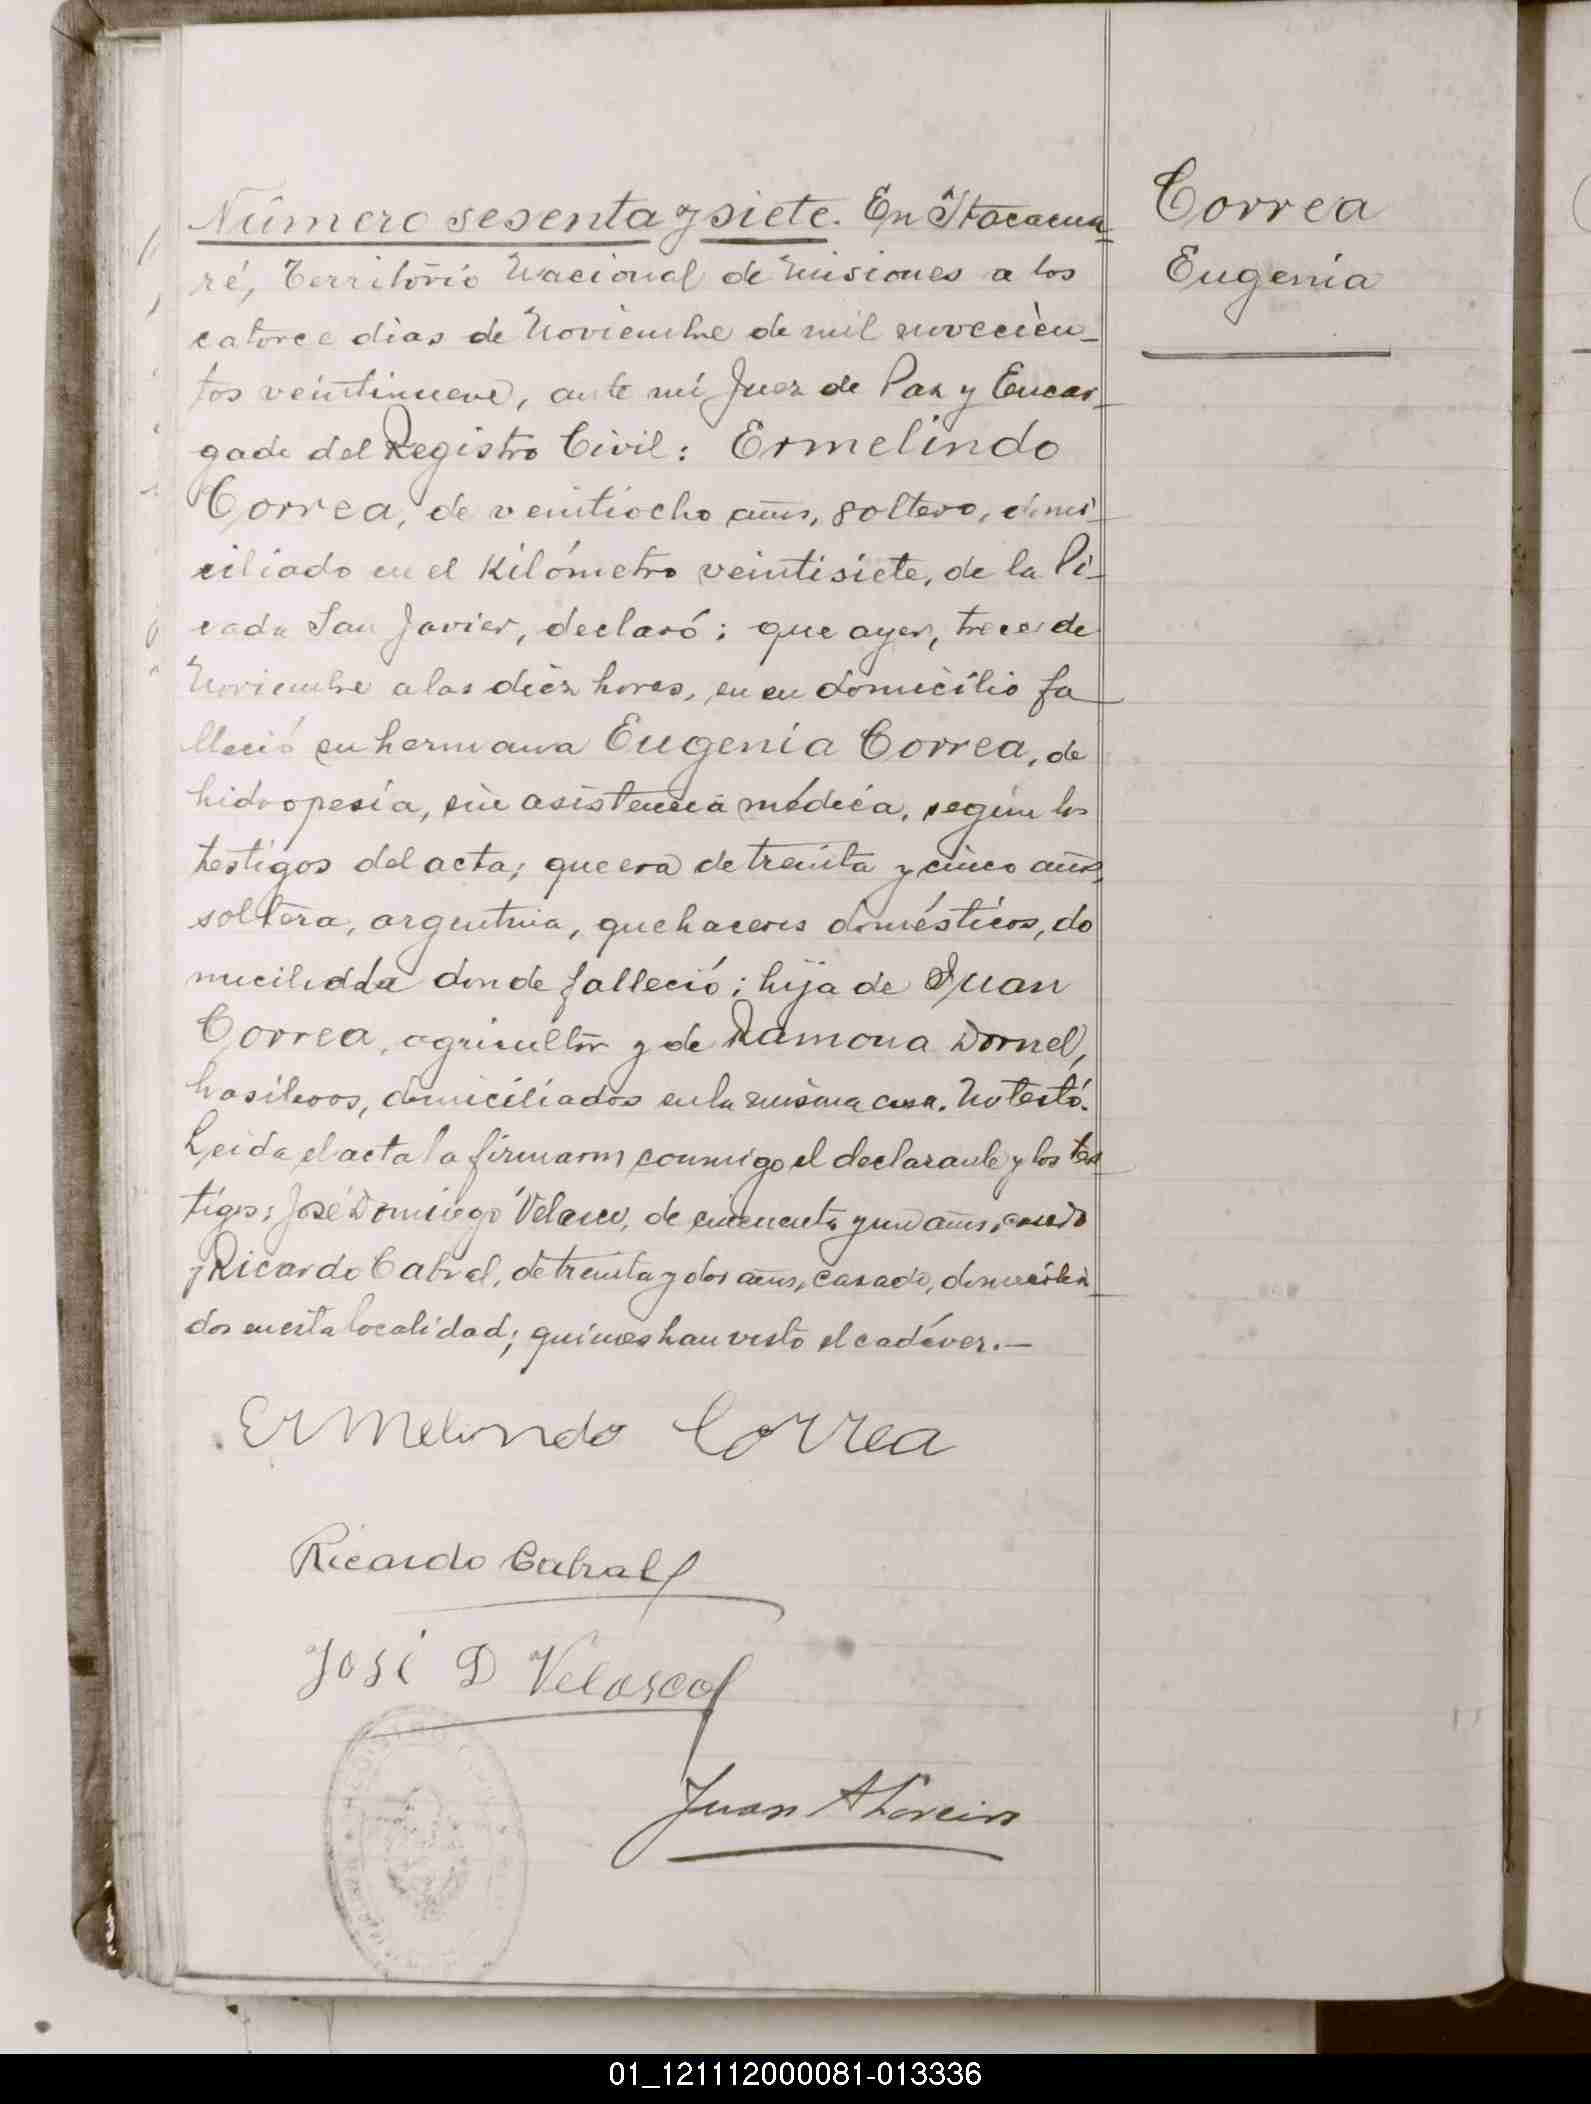 Número sesenta y siete. En Itacarua-
ré, Territorio Nacional de Misiones a los
catorce dias de Noviembre de mil novecien-
tos veintinueve, ante mi Juez de Paz y Encar-
gado del Registro Civil: Ermelindo
Correa, de veintiocho años, soltero, domi-
ciliado en el Kilómetro veintisiete, de la Pi-
cada San Javier, declaró: que ayer, trece de
Noviembre a las diéz horas, en su domicilio fa-
lleció su hermana Eugenia Correa, de
hidropesía, sin asistencia médica, según los
testigos del acta; que era de treinta y cinco años,
soltera, argentina, quehaceres domésticos, do
miciliada donde falleció; hija de Juan
Correa, agricultor y de Ramona Dornel,
brasileros, domiciliados en la misma casa. No testó.
Leida el acta la firmaron conmigo el declarante y los tes-
tigos: José Domingo Velasco, de cincuenta y un años, casado
y Ricardo Cabral, de treinta y dos años, casado, domicilia-
dos en esta localidad; quienes han visto el cadáver.—
Correa
Eugenia
Ermelindo Correa
Ricardo Cabral
José D Velasco
Juan A
01_121112000081-013336